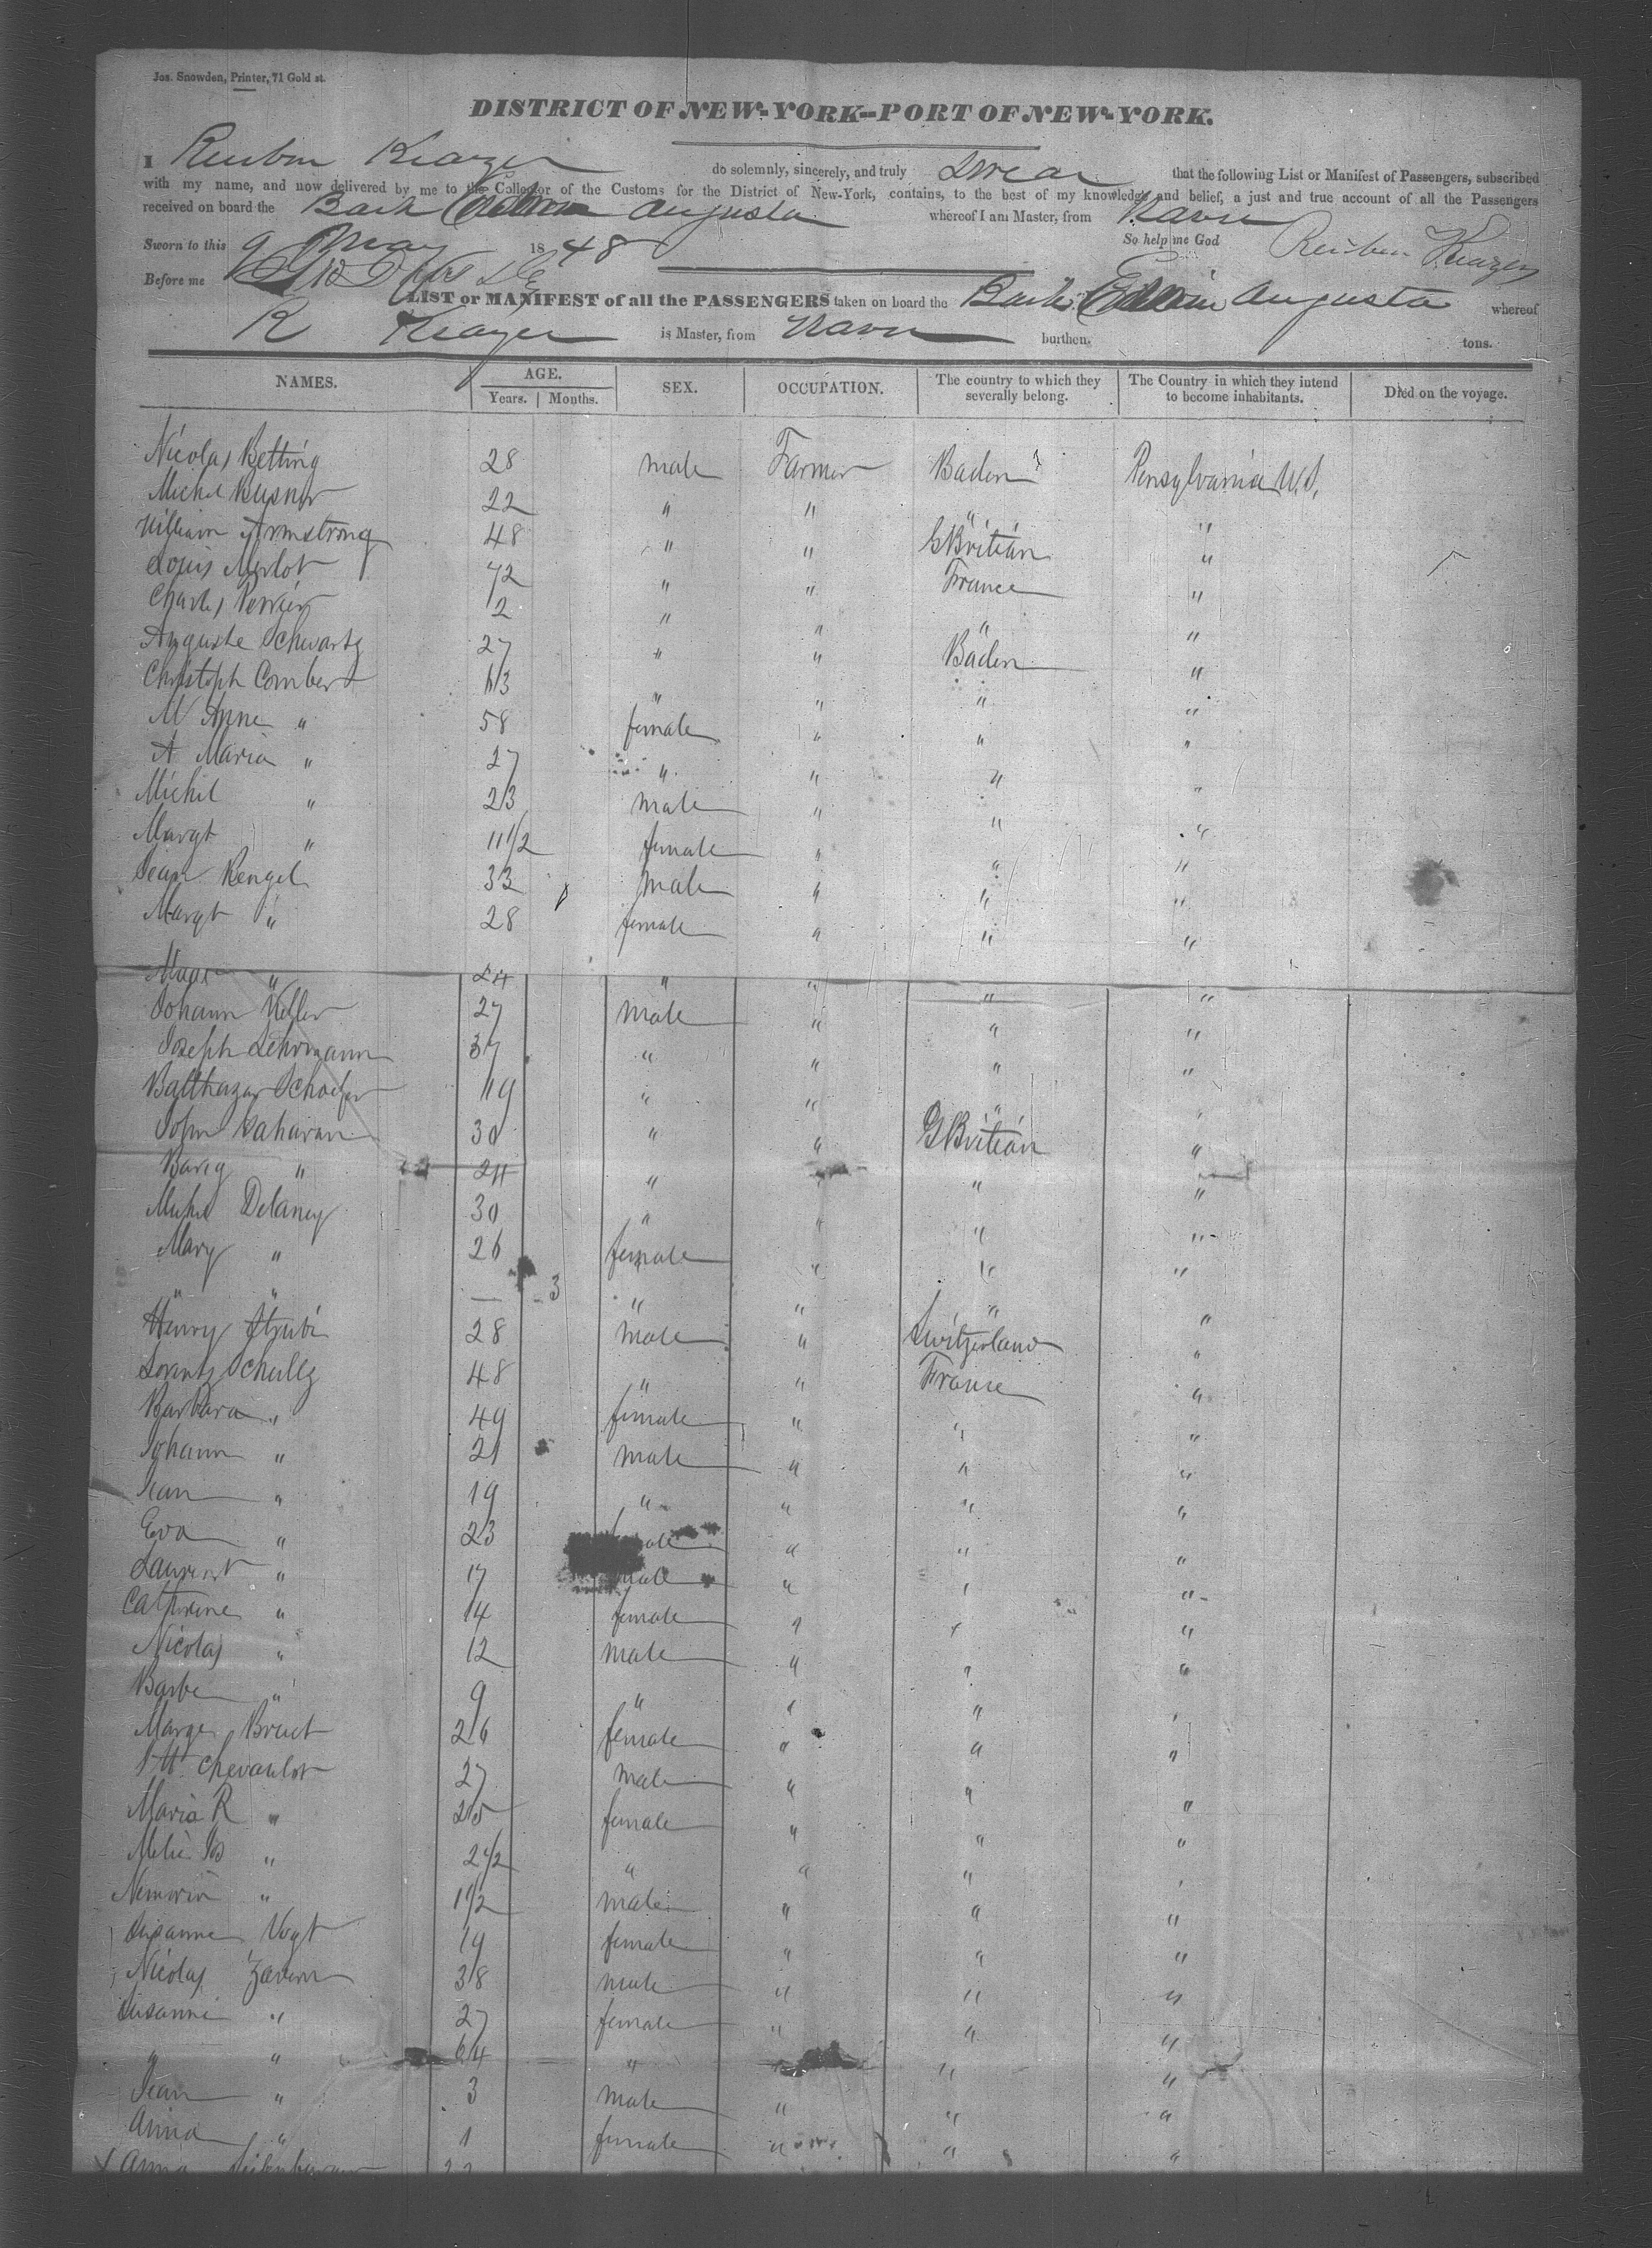 Jos. Snowden, Printer, 71 Gold st.
DISTRICT OF NEW-YORK--PORT OF NEW-YORK.
I Reuben Keazer do solemnly, sincerely, and truly Swear that the following List or Manifest of Passengers, subscribed
with my name, and now delivered by me to the Collector of the Customs for the District of New-York, contains, to the best of my knowledge and belief, a just and true account of all the Passengers
received on board the Bark Edwin Augusta whereof I am Master, from Havre
Sworn to this 9 May 1848 So help me God Reuben Keazer
Before me
LIST or MANIFEST of all the PASSENGERS taken on board the Bark Edwin Augusta whereof
R Keazer is Master, from Havre burthen, tons.
NAMES. AGE. SEX. OCCUPATION. The country to which they severally belong. The Country in which they intend to become inhabitants. Died on the voyage.
Years. Months.
Nicolas Betting 28 male Farmer Baden Pensylvania U.S.
Michel 22 " " " "
William Armstrong 48 " " G Britian "
Louis Merlot 72 " " France "
Charles Perrier 2 " " " "
Auguste Schwartz 27 " " Baden "
Christoph Comber 63 " " " "
M Anne " 58 female " " "
A Maria " 27 " " " "
Michel " 23 male " " "
Margt " 11 1/2 female " " "
Jean Rengel 33 male " " "
Margt " 28 female " " "
" 24 " " " "
Johann Keller 27 male " " "
Joseph Lehrmann 37 " " " "
Balthazar Schaefer 49 " " " "
John 30 " " G Britian "
" 24 " " " "
Michl Delaney 30 " " " "
Mary " 26 female " " "
" " — 3 " " " "
Henry Strubi 28 male " Switzerland "
Lorentz Schultz 48 " " France "
Barbara " 49 female " " "
Johann " 21 male " " "
Jean " 19 " " " "
Eva " 23 " " "
Laurent " 17 male " " "
Catherine " 14 female " " "
Nicolas " 12 male " " "
Barbe " 9 " " " "
Margr 26 female " " "
Chevaulot 27 male " " "
Maria R " 25 female " " "
" 2 1/2 " " " "
" 1 1/2 male " " "
Susanne Vogt 19 female " " "
Nicolas Zavern 38 male " " "
Susanne " 27 female " " "
" " 64 " " " "
Jean " 3 male " " "
Anna " 1 female " " "
Anna